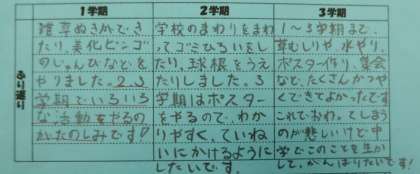 1学期
2学期
3学期
ふり返り
雑草ぬきができ
たり、美化ビンゴ
のじゅんびなどを
やりました。2、3
学期でいろいろ
な活動をやるの
がたのしみです!
学校のまわりをまわ
ってゴミひろいをし
たり、球根をうえ
たりしました。3
学期はポスター
をやるので、わか
りやすく、ていね
いにかけるように
したいです。
1〜3学期まで、
草むしりや水やり。
ポスター作り、集会
など、たくさんかつや
くできてよかったです
これでおわってしまう
のが悲しいけど中
学でこのことを生か
して、がんばりたいです!